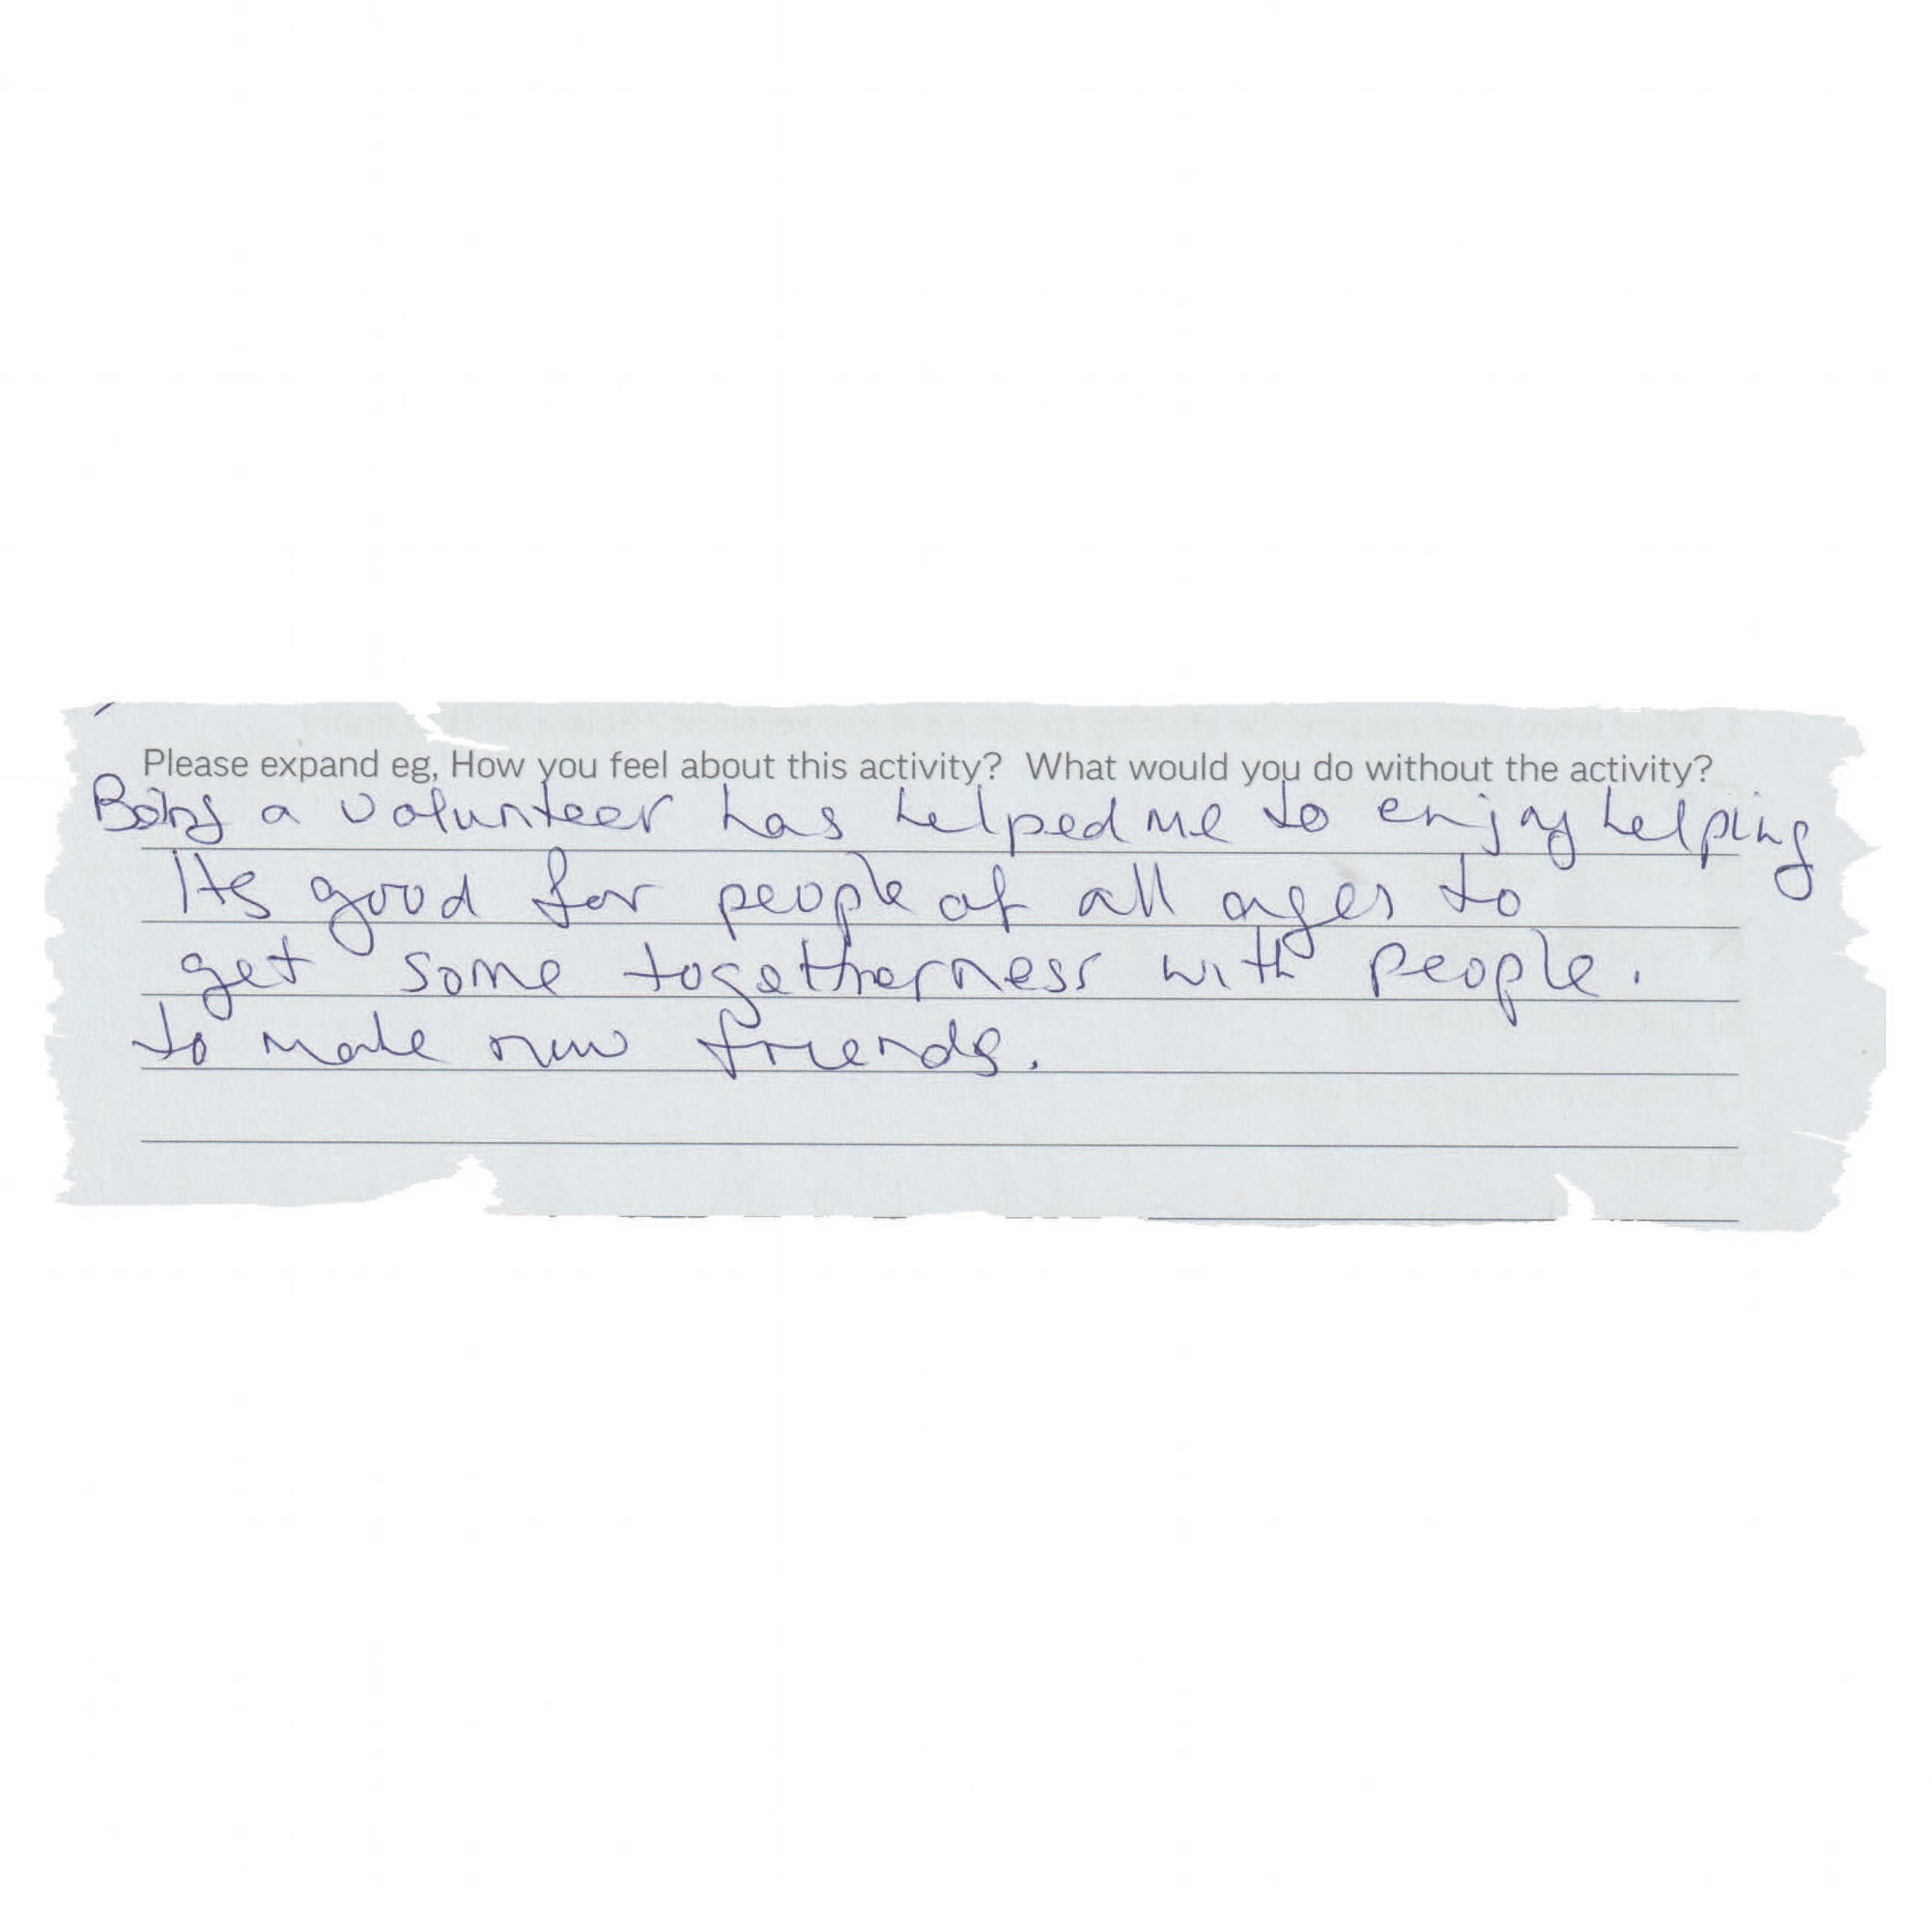 Please expand eg, How you feel about this activity? What would you do without the activity?
Being a volunteer has helped me to enjoy helping
Its good for people of all ages to
get some togetherness with people.
to make new friends.